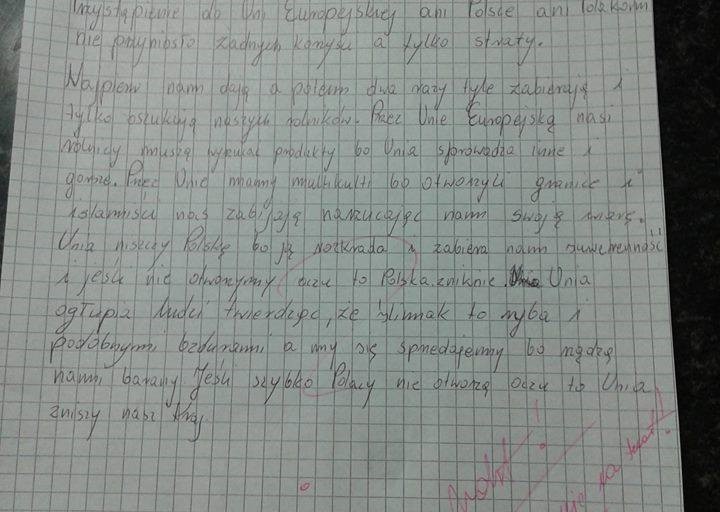 Przystąpienie do Uni Europejskiej ani Polsce ani Polakom
nie przyniosło żadnych korzyści a tylko straty.
Najpierw nam dają a potem dwa razy tyle zabierają i
tylko oszukują naszych rolników. Przez Unie Europejską nasi
rolnicy muszą produkty bo Unia sprowadza inne i
gorsze. Przez Unie mamy multikulti bo otworzyli granice i
islamiści nas zabijają narzucając nam swoją wiarę.
Unia niszczy Polskę bo ją rozkrada i zabiera nam suwerenność
i jeśli nie otworzymy oczu to Polska zniknie. Unia
ogłupia ludzi twierdząc, że ślimak to ryba i
podobnymi bzdurami a my się sprzedajemy bo rządzą
nami barany Jeśli szybko Polacy nie otworzą oczu to Unia
zniszy nasz kraj
nie na temat!